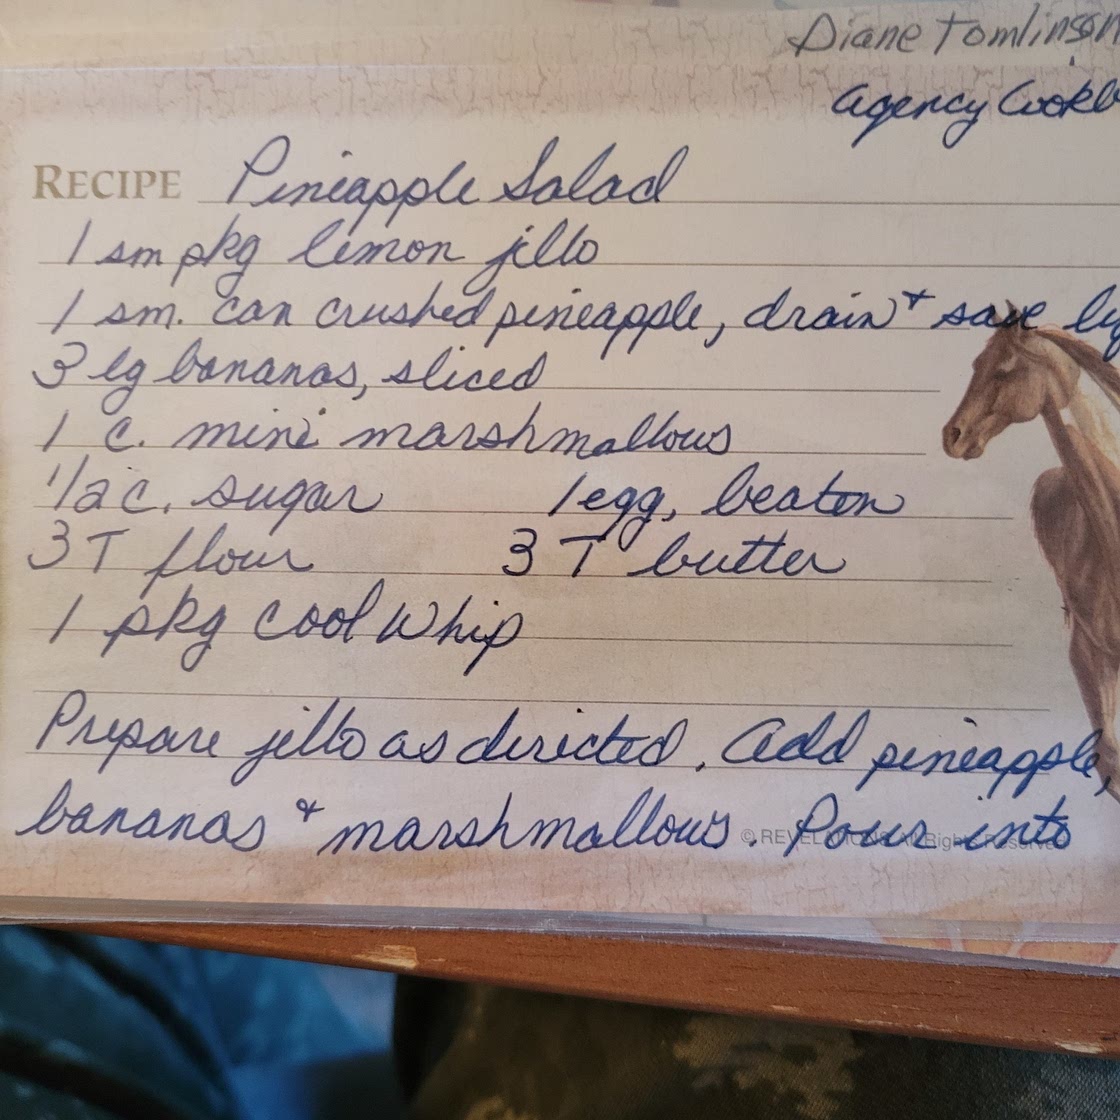 Diane Tomlinson
Agency Cookb
RECIPE Pineapple Salad
1 sm pkg lemon jello
1 sm. can crushed pineapple, drain & save
3 lg bananas, sliced
1 c. mini marshmallows
1/2 c. sugar 1 egg, beaten
3 T flour 3 T butter
1 pkg Cool Whip
Prepare jello as directed. Add pineapple,
bananas & marshmallows. Pour into
© REVELATIONS All Rights Reserved